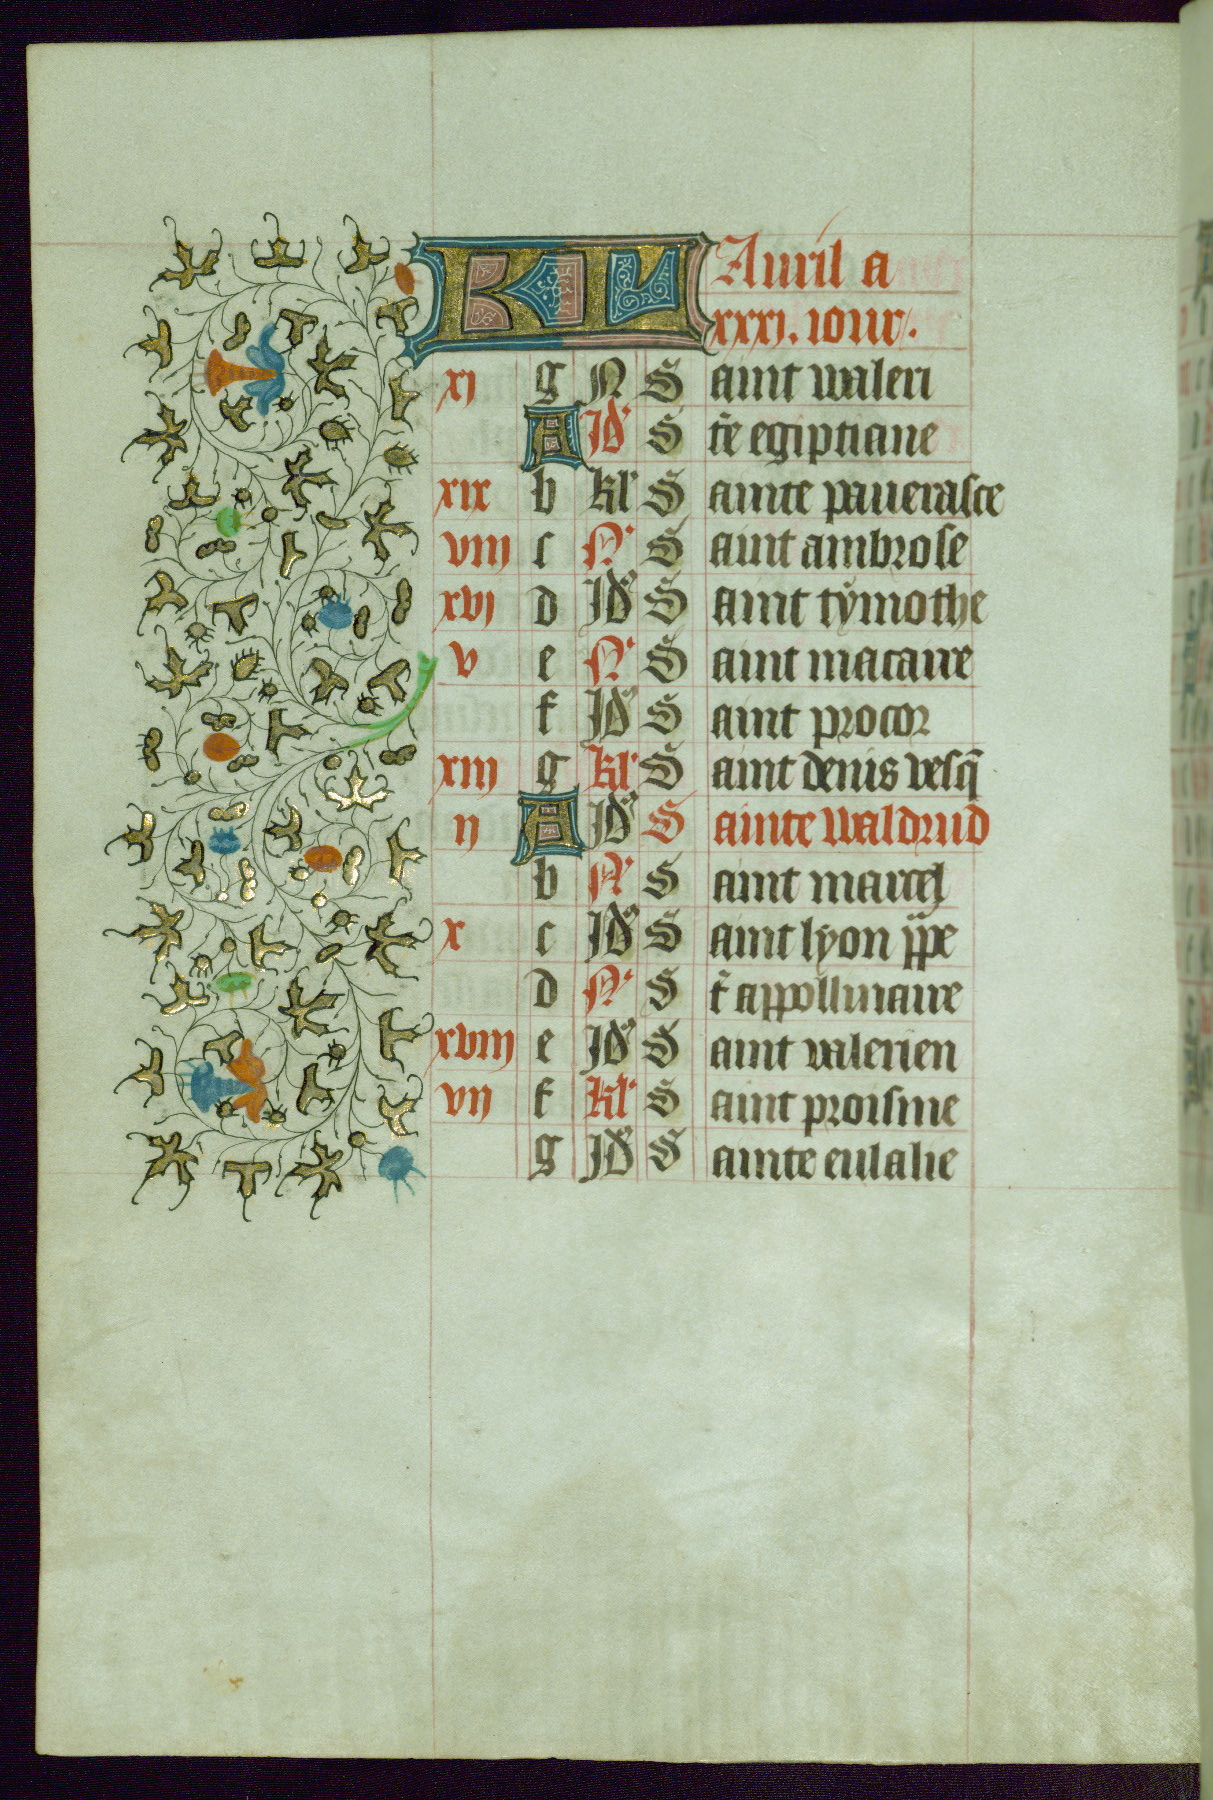 KL Auril a
xxxi. iour.
xi g N Saint waleri
A Id' S te egiptiane
xix b kl' Sainte pauerasce
viii c N' Saint ambrose
xvi d Id' Saint tymothe
v e N' Saint macaire
f Id' Saint procor
xiii g kl' Saint denis vesq̄
ii A Id' Sainte Waldrud
b N' Saint marcel
x c Id' Saint lyon ppe
d N' S t appollinaire
xviii e Id' Saint valerien
vii f kl' Saint proisme
g Id' Sainte eulalie